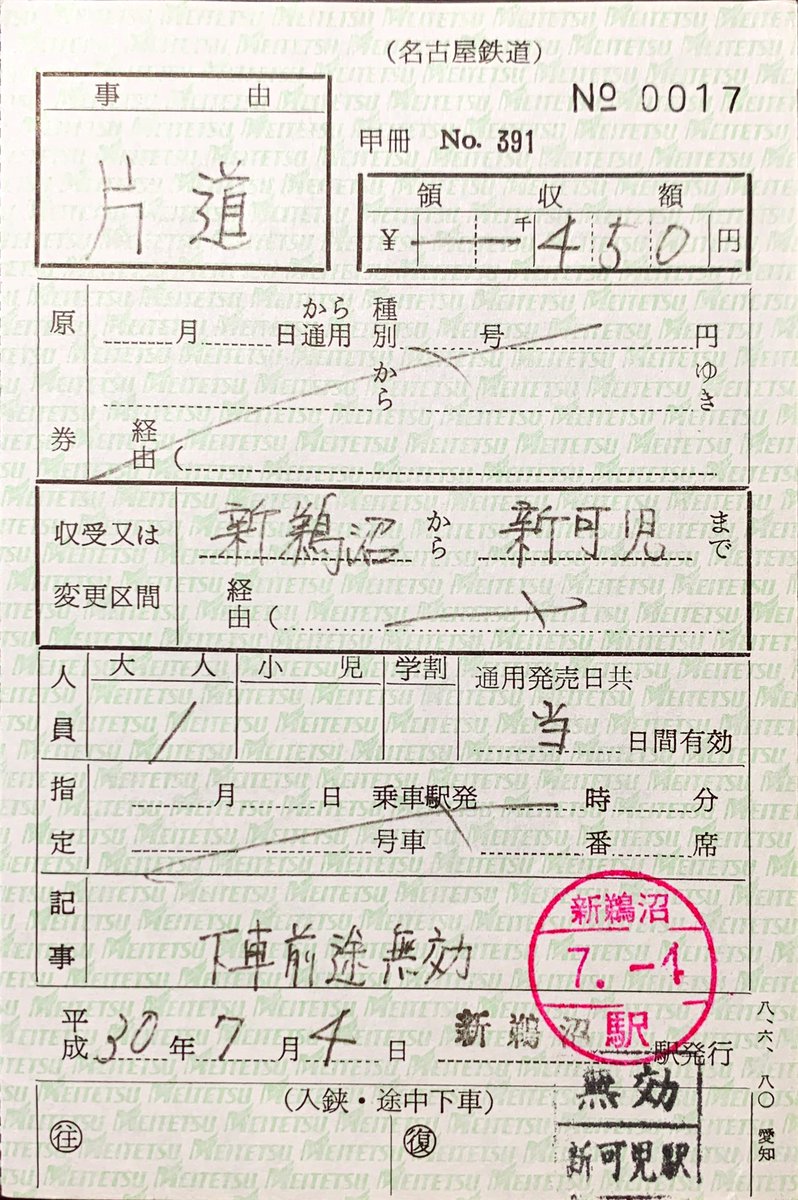 (名古屋鉄道)
事由
№ 0017
甲冊 No. 391
片道
領収額
¥ 千450円
原券
月日から通用 種別 号 円
から ゆき
経由(
収受又は変更区間
新鵜沼から新可児まで
経由(
人員
大人 小児 学割 通用発売日共
1 当日間有効
指定
月日 乗車駅発 時分
号車 番席
記事
下車前途無効
新鵜沼
7.-4
駅
平成30年7月4日 新鵜沼駅発行
(入鋏・途中下車)
往 復
無効
新可児駅
八、六、八〇 愛知
MEITETSU